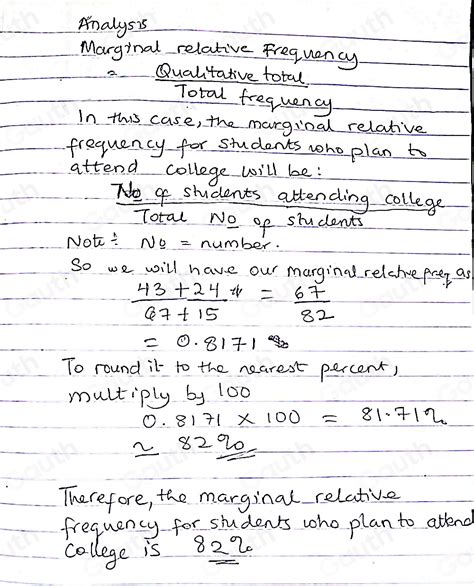 Analysis
Marginal relative Frequency
= Qualitative total
Total frequency
In this case, the marginal relative
frequency for students who plan to
attend college will be:
No of students attending college
Total No of students
Note: No = number.
So we will have our marginal relative freq as
43 + 24 = 67
67 + 15 82
= 0.8171
To round it to the nearest percent,
multiply by 100
0.8171 × 100 = 81.71%
≈ 82%
Therefore, the marginal relative
frequency for students who plan to attend
college is 82%